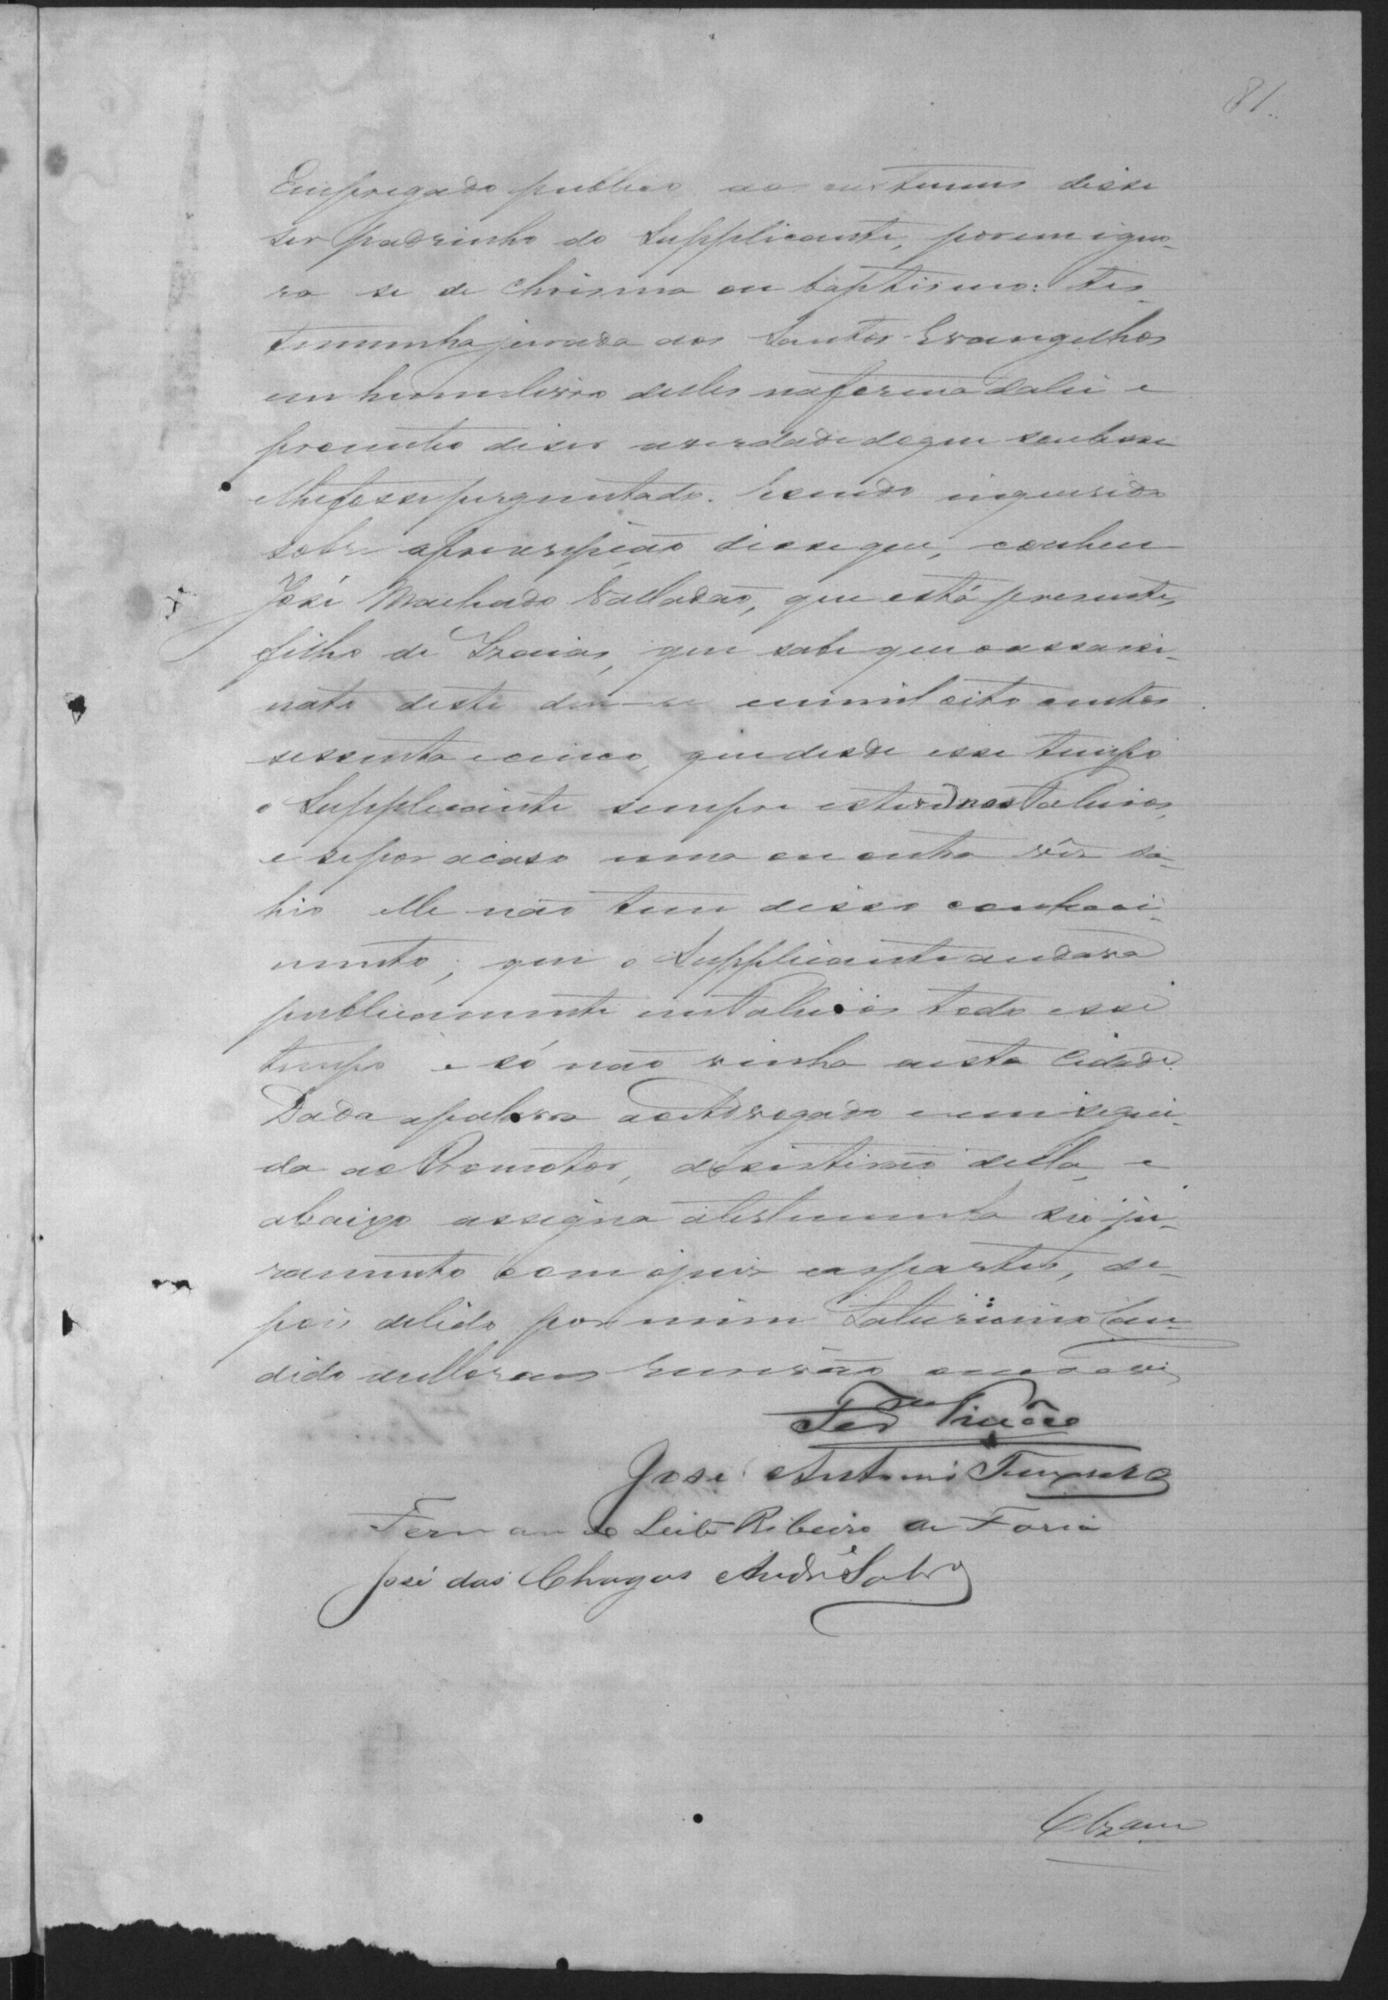 81.
Empregado publico aos custumes disse
ser padrinho do Supplicante, porem igno-
ra se de Chrisma ou baptismo: tes-
temunha jurada aos Santos Evangelhos
em hum livro delles na forma da lei e
prometeo diser a verdade do que soubesse
e lhe fosse perguntado. E sendo inquerido
sobre a prescripção disse que, conhece
José Machado Valladão, que está presente,
filho de Izaias, que sabe que o assassi-
nato deste deu-se em mil oito centos
sessenta e cinco, que desde esse tempo
o Supplicante sempre esteve nos Talhios,
e se por acaso uma ou outra vêz sa-
hio elle não tem disso conheci-
mento; que o Supplicante andava
publicamente em Talhios todo esse
tempo e só não vinha a esta Cidade.
Dada a palavra ao Advogado e em segui-
da ao Promotor, desistirão della, e
abaixo assigna a testemunha seo ju-
ramento com o juiz e as partes, de-
pois de lido por mim Saturnino Can-
dido de Moraes Escrivão que escrevi
José Antonio
Fernando Leite Ribeiro de Faria
José das Chagas André Sobrº